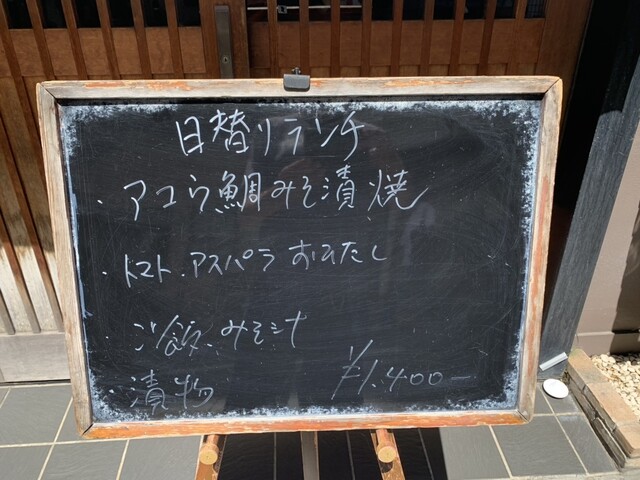 日替りランチ
・アコウ鯛みそ漬焼
・トマト、アスパラ おひたし
・ご飯、みそ汁
・漬物 ¥1,400-